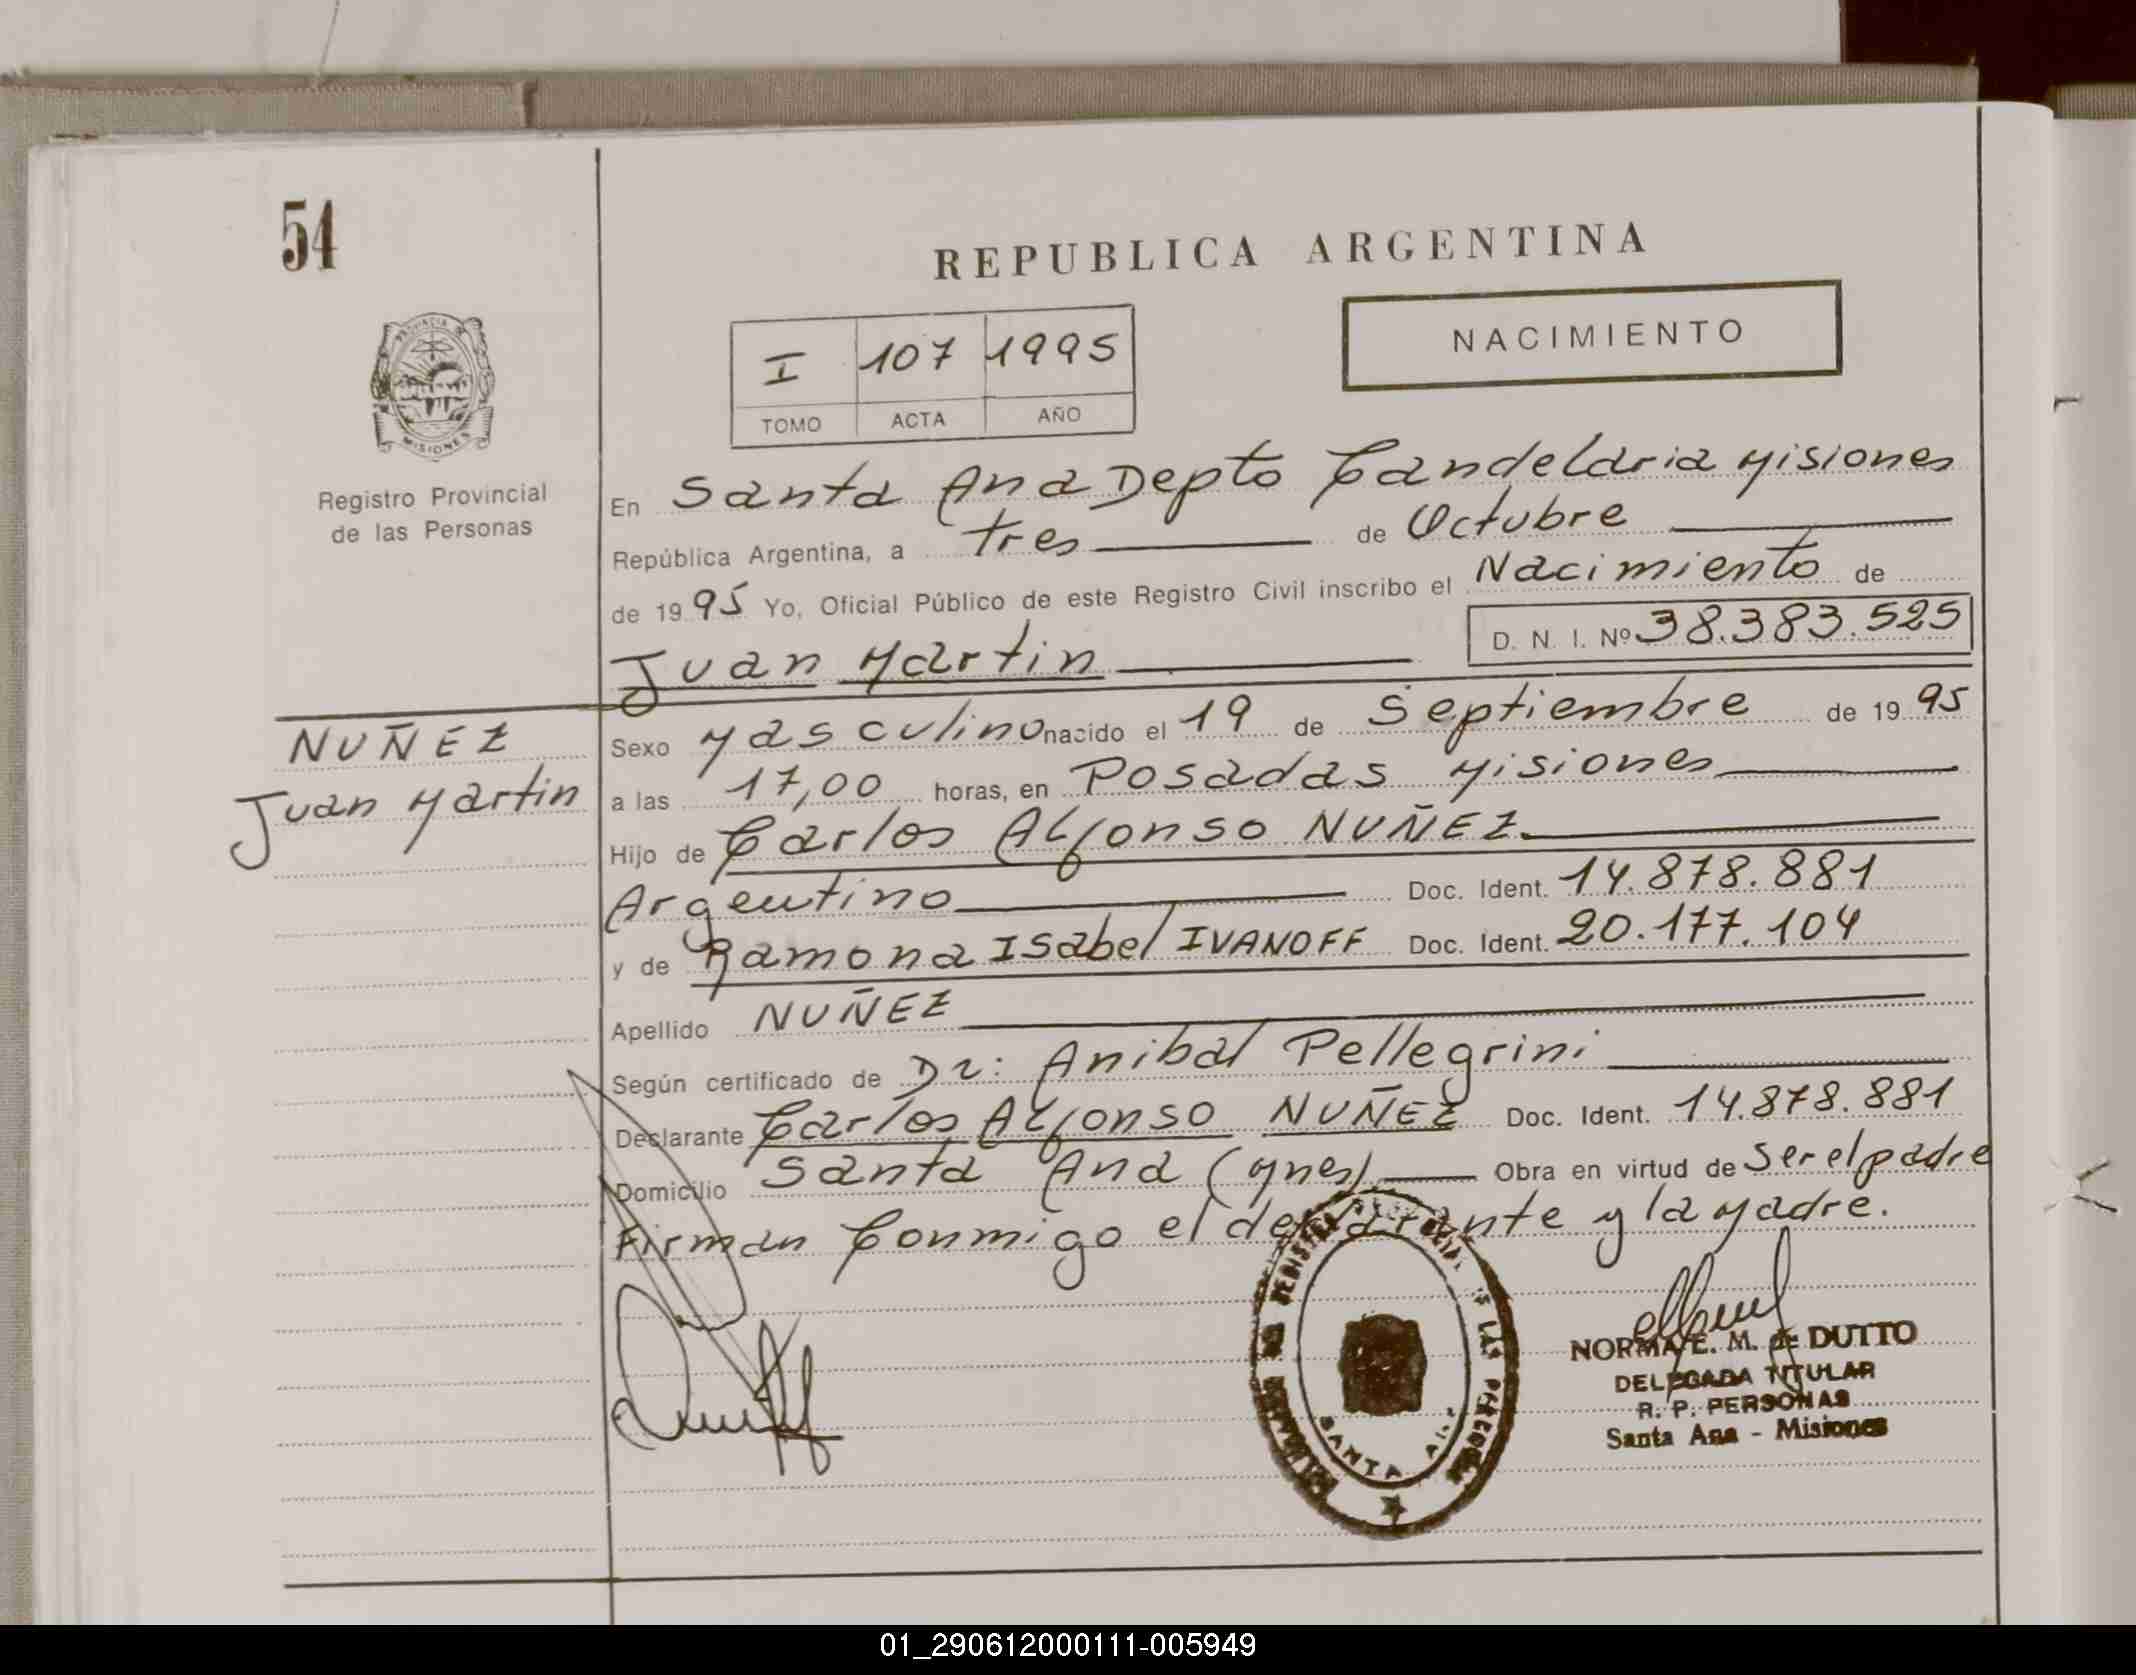 54
REPUBLICA ARGENTINA
PROVINCIA DE
MISIONES
Registro Provincial
de las Personas
I 107 1995
TOMO ACTA AÑO
NACIMIENTO
En Santa Ana Depto Candelaria Misiones
República Argentina, a tres de Octubre
de 1995 Yo, Oficial Público de este Registro Civil inscribo el Nacimiento de
D. N. I. Nº 38.383.525
Juan Martin
NUÑEZ
Juan Martin
Sexo Masculino nacido el 19 de Septiembre de 1995
a las 17,00 horas, en Posadas Misiones
Hijo de Carlos Alfonso NUÑEZ
Argentino Doc. Ident. 14.878.881
y de Ramona Isabel IVANOFF Doc. Ident. 20.177.104
Apellido NUÑEZ
Según certificado de Dr: Anibal Pellegrini
Declarante Carlos Alfonso NUÑEZ Doc. Ident. 14.878.881
Domicilio Santa Ana (Mnes) Obra en virtud de ser el padre
Firman Conmigo el declarante y la Madre.
SANTA ANA
NORMA E. M. de DUTTO
DELEGADA TITULAR
R. P. PERSONAS
Santa Ana - Misiones
01_290612000111-005949